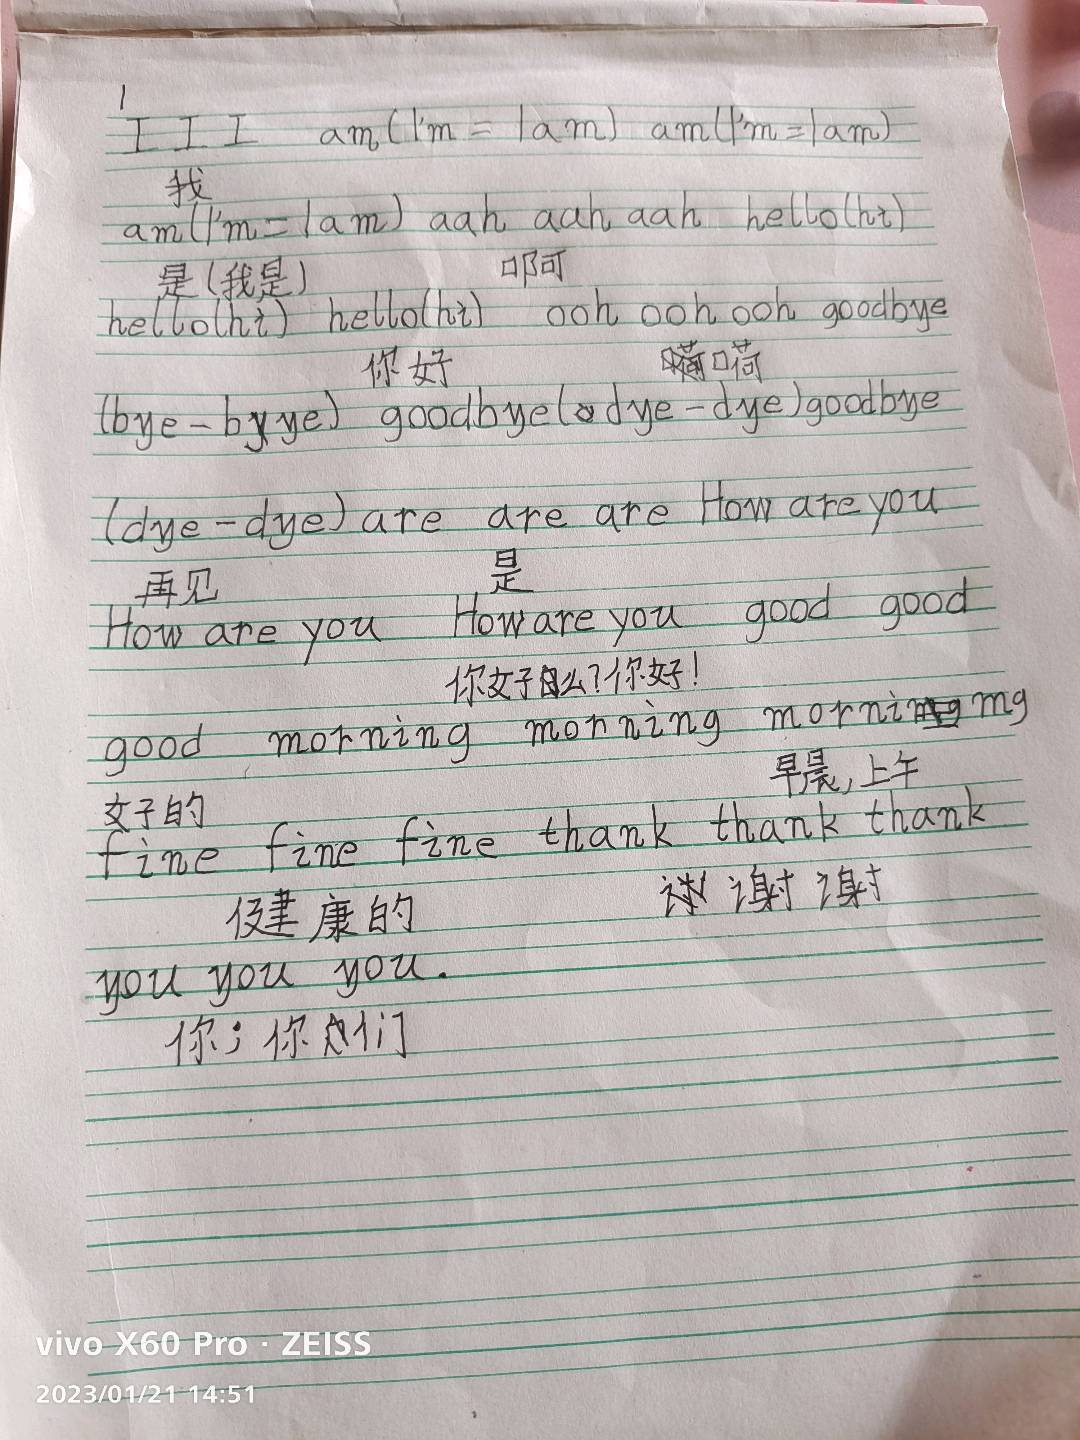 1
I I I am(I'm = Iam) am(I'm=Iam)
我
am(I'm=Iam) aah aah aah hello(hi)
是(我是) 啊
hello(hi) hello(hi) ooh ooh ooh goodbye
你好 嗬
(bye-byye) goodbye(dye-dye)goodbye
(dye-dye)are are are How are you
再见 是
How are you How are you good good
你好么?你好!
good morning morning morning
好的 早晨,上午
fine fine fine thank thank thank
健康的 谢 谢
you you you.
你;你们
vivo X60 Pro · ZEISS
2023/01/21 14:51